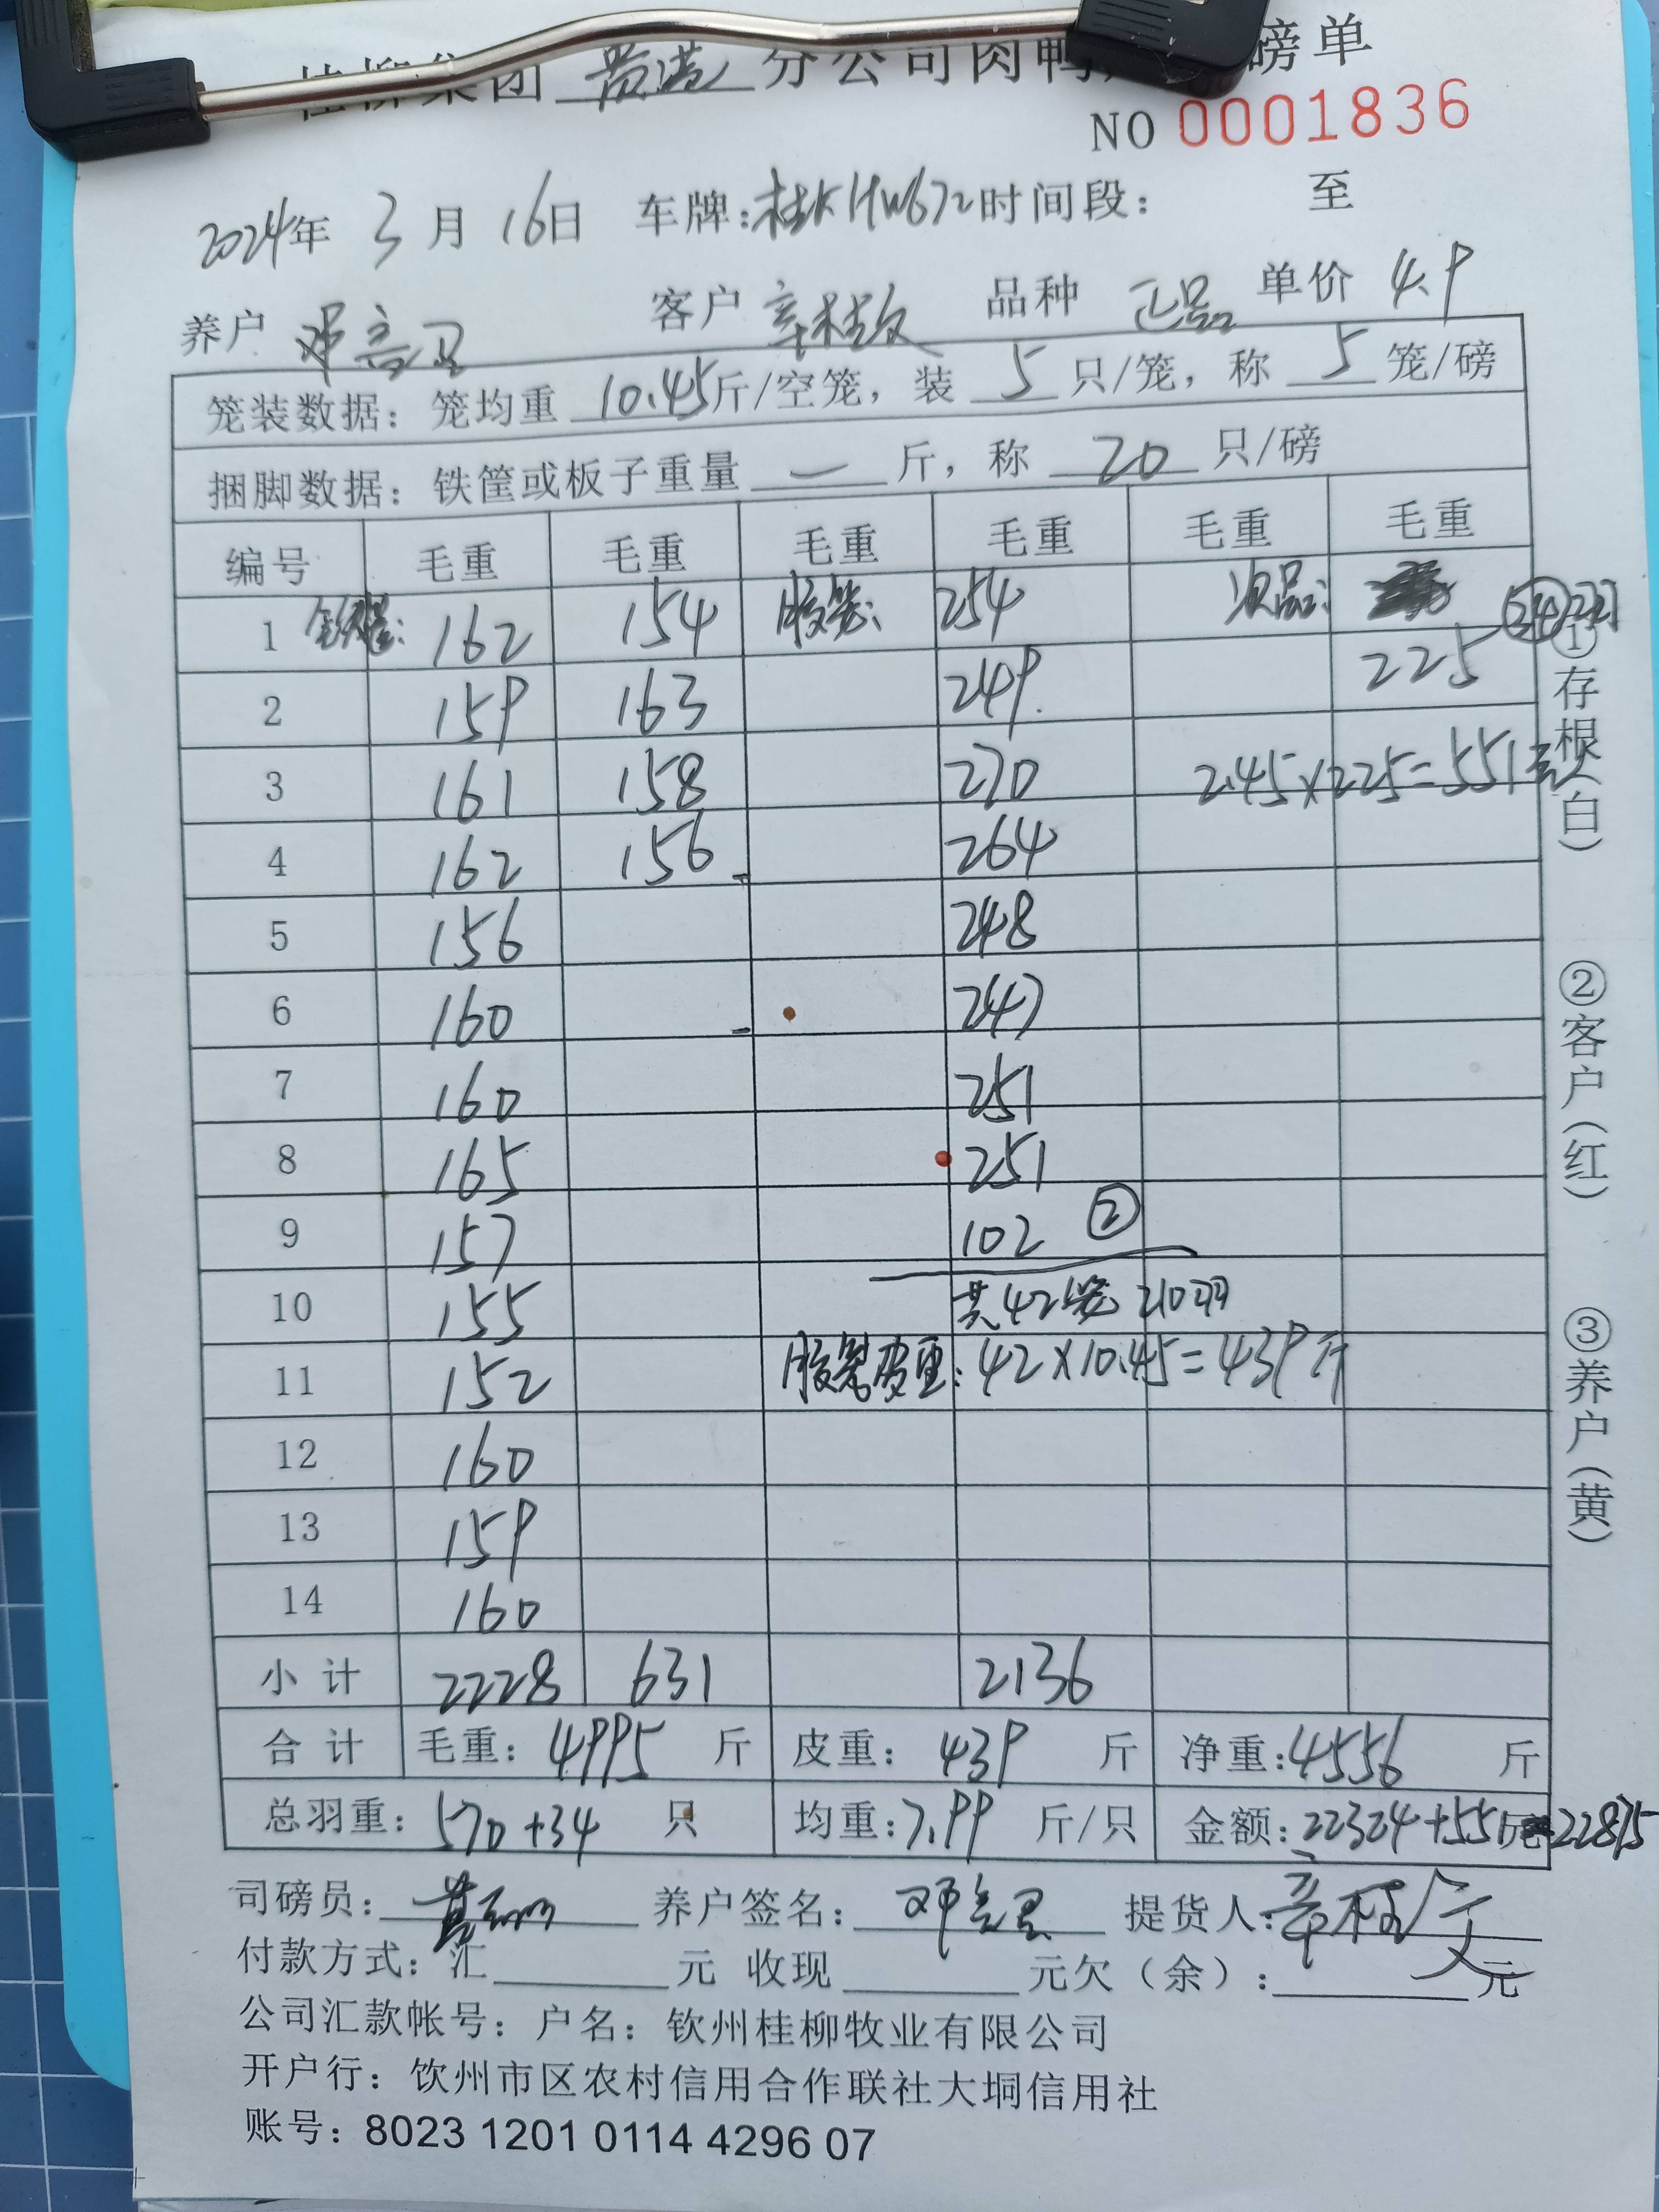 桂柳集团 分公司肉鸭 磅单
NO 0001836
2024年 3月 16日 车牌:桂KHW672 时间段: 至
养户 邓 客户 章桂 品种 正品 单价 4.9
笼装数据: 笼均重 10.45 斤/空笼, 装 5 只/笼, 称 5 笼/磅
捆脚数据: 铁筐或板子重量 一 斤, 称 20 只/磅
编号 毛重 毛重 毛重 毛重 毛重 毛重
1 铁筐: 162 154 胶笼: 254 次品: 34羽
2 159 163 249. 225
3 161 158 270 2.45×225=551元
4 162 156 264
5 156 248
6 160 247
7 160 251
8 165 251
9 157 102 ②
10 155 共42笼 210羽
11 152 胶笼皮重: 42×10.45=439斤
12 160
13 159
14 160
小计 2228 631 2136
合计 毛重: 4995 斤 皮重: 439 斤 净重: 4556 斤
总羽重: 570+34 只 均重: 7.99 斤/只 金额: 22324+551 22875
司磅员: 养户签名: 邓 提货人: 章桂
付款方式: 汇 元 收现 元欠(余): 元
公司汇款帐号: 户名: 钦州桂柳牧业有限公司
开户行: 钦州市区农村信用合作联社大垌信用社
账号: 8023 1201 0114 4296 07
①存根(白)
②客户(红)
③养户(黄)